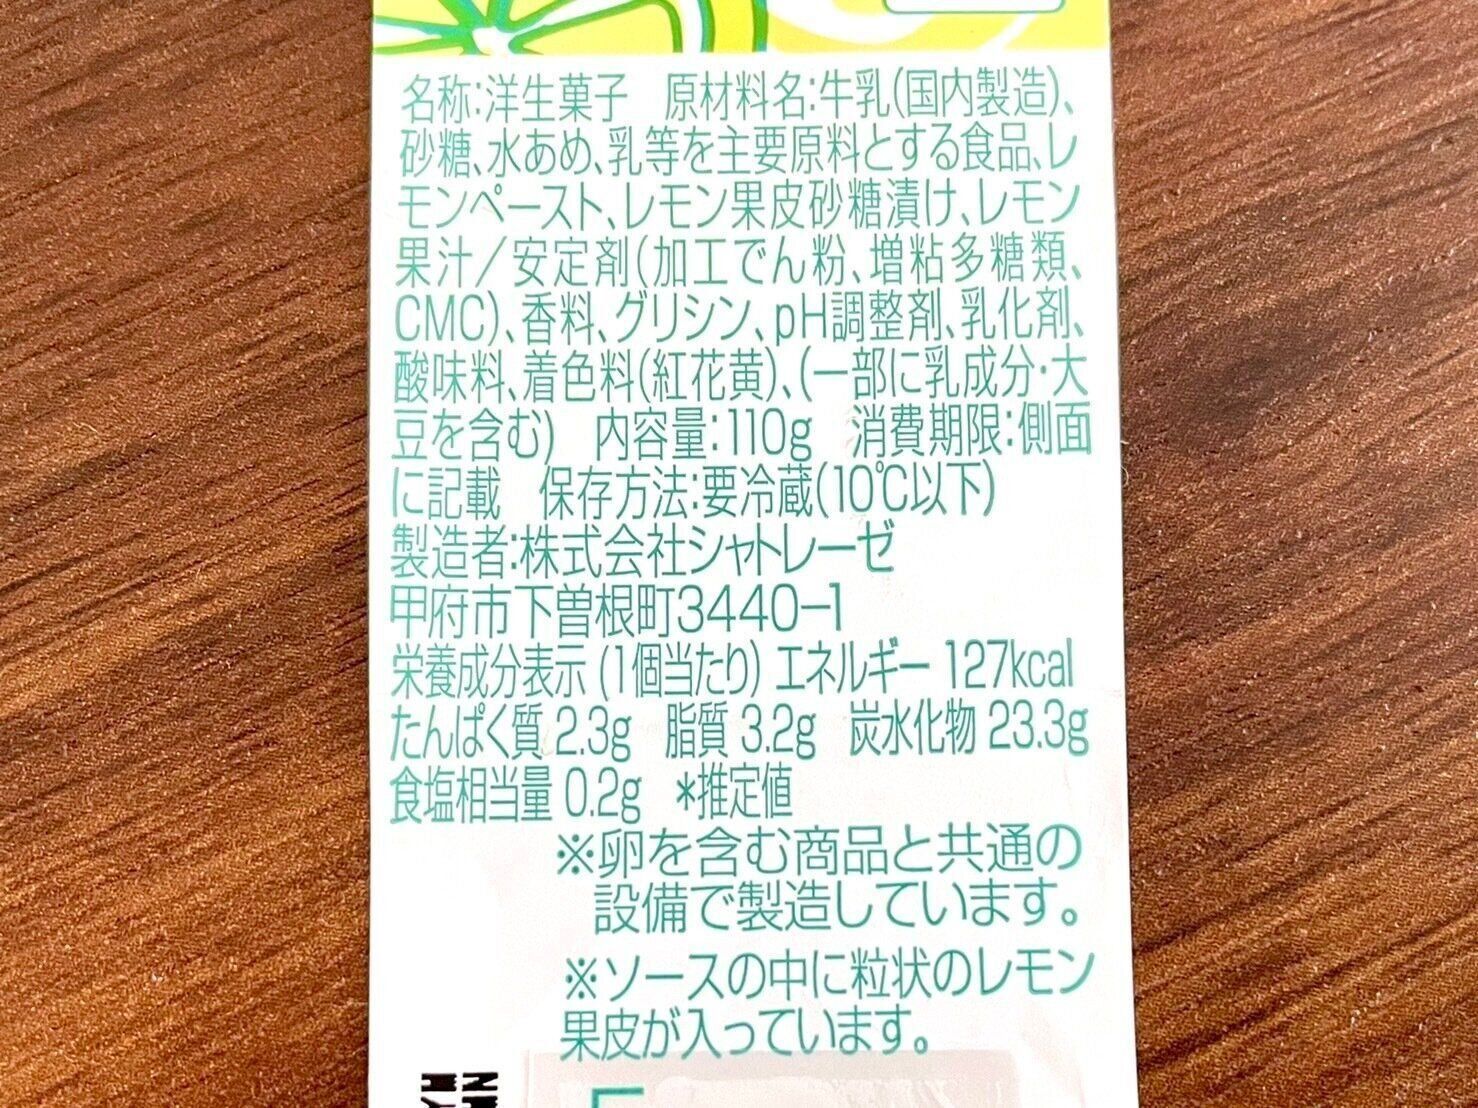 名称:洋生菓子　原材料名:牛乳(国内製造)、
砂糖、水あめ、乳等を主要原料とする食品、レ
モンペースト、レモン果皮砂糖漬け、レモン
果汁/安定剤(加工でん粉、増粘多糖類、
CMC)、香料、グリシン、pH調整剤、乳化剤、
酸味料、着色料(紅花黄)、(一部に乳成分・大
豆を含む)　内容量:110g　消費期限:側面
に記載　保存方法:要冷蔵(10℃以下)
製造者:株式会社シャトレーゼ
甲府市下曽根町3440-1
栄養成分表示 (1個当たり) エネルギー 127kcal
たんぱく質 2.3g　脂質 3.2g　炭水化物 23.3g
食塩相当量 0.2g　*推定値
※卵を含む商品と共通の
設備で製造しています。
※ソースの中に粒状のレモン
果皮が入っています。